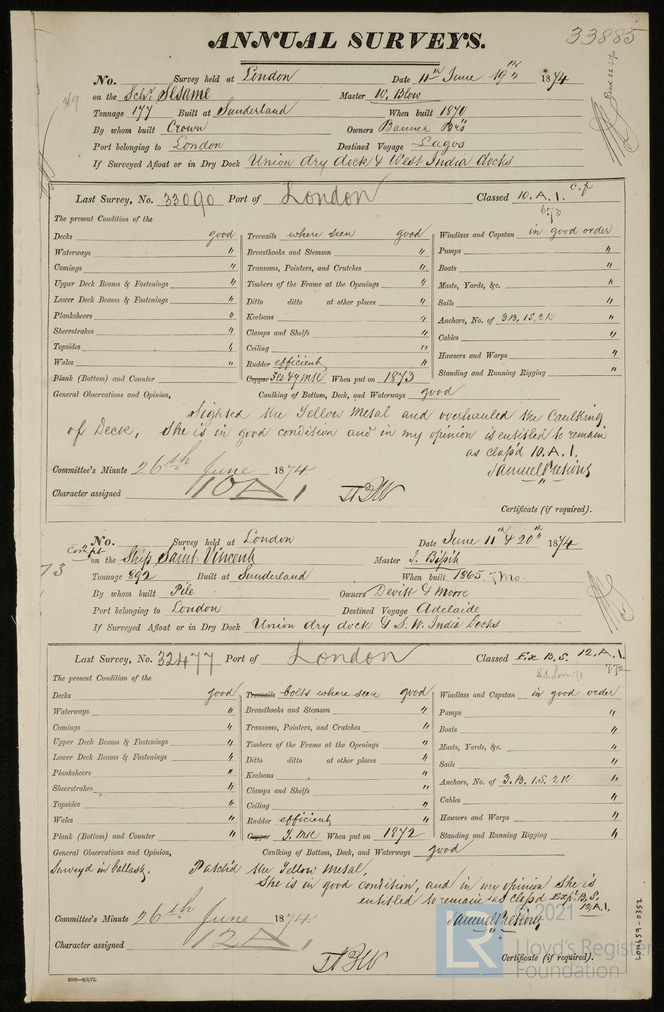 33885
ANNUAL SURVEYS.
No. Survey held at London Date 11th June 19th 1874
on the Schr. Sesame Master W. Blow
Tonnage 177 Built at Sunderland When built 1870
By whom built Crown Owners Banner Brs
Port belonging to London Destined Voyage Lagos
If Surveyed Afloat or in Dry Dock Union dry dock & West India docks
Last Survey, No. 33090 Port of London Classed 10. A. 1. c.f
6.73
The present Condition of the
Decks good Treenails where seen good Windlass and Capstan in good order
Waterways " Breasthooks and Stemson " Pumps "
Comings " Transoms, Pointers, and Crutches " Boats "
Upper Deck Beams & Fastenings " Timbers of the Frame at the Openings " Masts, Yards, &c. "
Lower Deck Beams & Fastenings " Ditto ditto at other places " Sails "
Planksheers " Keelsons " Anchors, No. of 3 B. 1 S. 2 K "
Sheerstrakes " Clamps and Shelfs " Cables "
Topsides " Ceiling " Hawsers and Warps "
Wales " Rudder efficient Standing and Running Rigging "
Plank (Bottom) and Counter " Copper When put on 1873
General Observations and Opinion, Caulking of Bottom, Deck, and Waterways good
Sighted the Yellow Metal and overhauled the Caulking
of Deck, She is in good condition and in my opinion is entitled to remain
as class'd 10. A. 1.
Committee's Minute 26th June 1874
Character assigned 10 A 1
Certificate (if required).
No. Survey held at London Date June 11th & 20th 1874
73
on the Ship Saint Vincent Master J.
Tonnage 892 Built at Sunderland When built 1865. 7 Mo.
By whom built Pile Owners Devitt & Moore
Port belonging to London Destined Voyage Adelaide
If Surveyed Afloat or in Dry Dock Union dry dock & S. W. India Docks
Last Survey, No. 32477 Port of London Classed Ex B. S. 12. A. 1.
The present Condition of the
Decks good Treenails bolts where seen good Windlass and Capstan in good order
Waterways " Breasthooks and Stemson " Pumps "
Comings " Transoms, Pointers, and Crutches " Boats "
Upper Deck Beams & Fastenings " Timbers of the Frame at the Openings " Masts, Yards, &c. "
Lower Deck Beams & Fastenings " Ditto ditto at other places " Sails "
Planksheers " Keelsons " Anchors, No. of 3. B. 1. S. 2 K "
Sheerstrakes " Clamps and Shelfs " Cables "
Topsides " Ceiling " Hawsers and Warps "
Wales " Rudder efficient Standing and Running Rigging "
Plank (Bottom) and Counter " Copper Y. Mtl When put on 1872
General Observations and Opinion, Caulking of Bottom, Deck, and Waterways good
Survey'd in ballast. Patch'd the Yellow Metal,
She is in good condition, and in my opinion She is
entitled to remain as class'd Exp. B. S.
12. A. 1.
Committee's Minute 26th June 1874
Character assigned 12 A 1
Certificate (if required).
© 2021
LR
Lloyd's Register
Foundation
LON659-0352